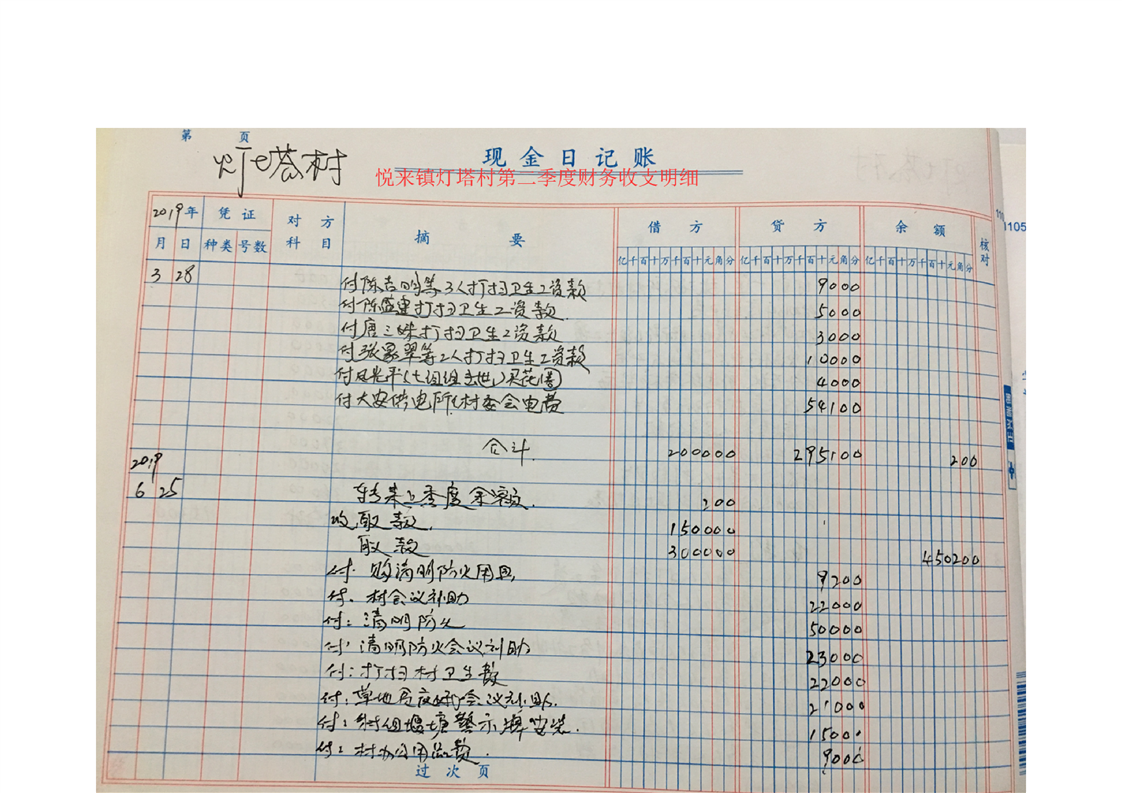 第 页
灯塔村
现金日记账
悦来镇灯塔村第二季度财务收支明细
2019年 凭证 对方科目 摘要 借方 贷方 余额 核对
月 日 种类 号数 亿千百十万千百十元角分 亿千百十万千百十元角分 亿千百十万千百十元角分
3 28 付陈吉明等3人打扫卫生工资款 9000
付陈盛建打扫卫生工资款 5000
付唐三妹打扫卫生工资款 3000
付张家翠等2人打扫卫生工资款 10000
付 光平(七组组 去世)买花圈 4000
付大安供电所(村委会电费 54100
合计. 200000 295100 200
2019
6 25 转来上季度余额. 200
收取款. 150000
取款 300000 450200
付: 购清明防火用具 9200
付: 村会议补助 22000
付: 清明防火 50000
付: 清明防火会议补助 23000
付: 打扫村卫生费 22000
付: 会议补助. 21000
付: 村组堰塘警示牌安装. 15000
付: 村办公用品费. 9000
过次页
1105